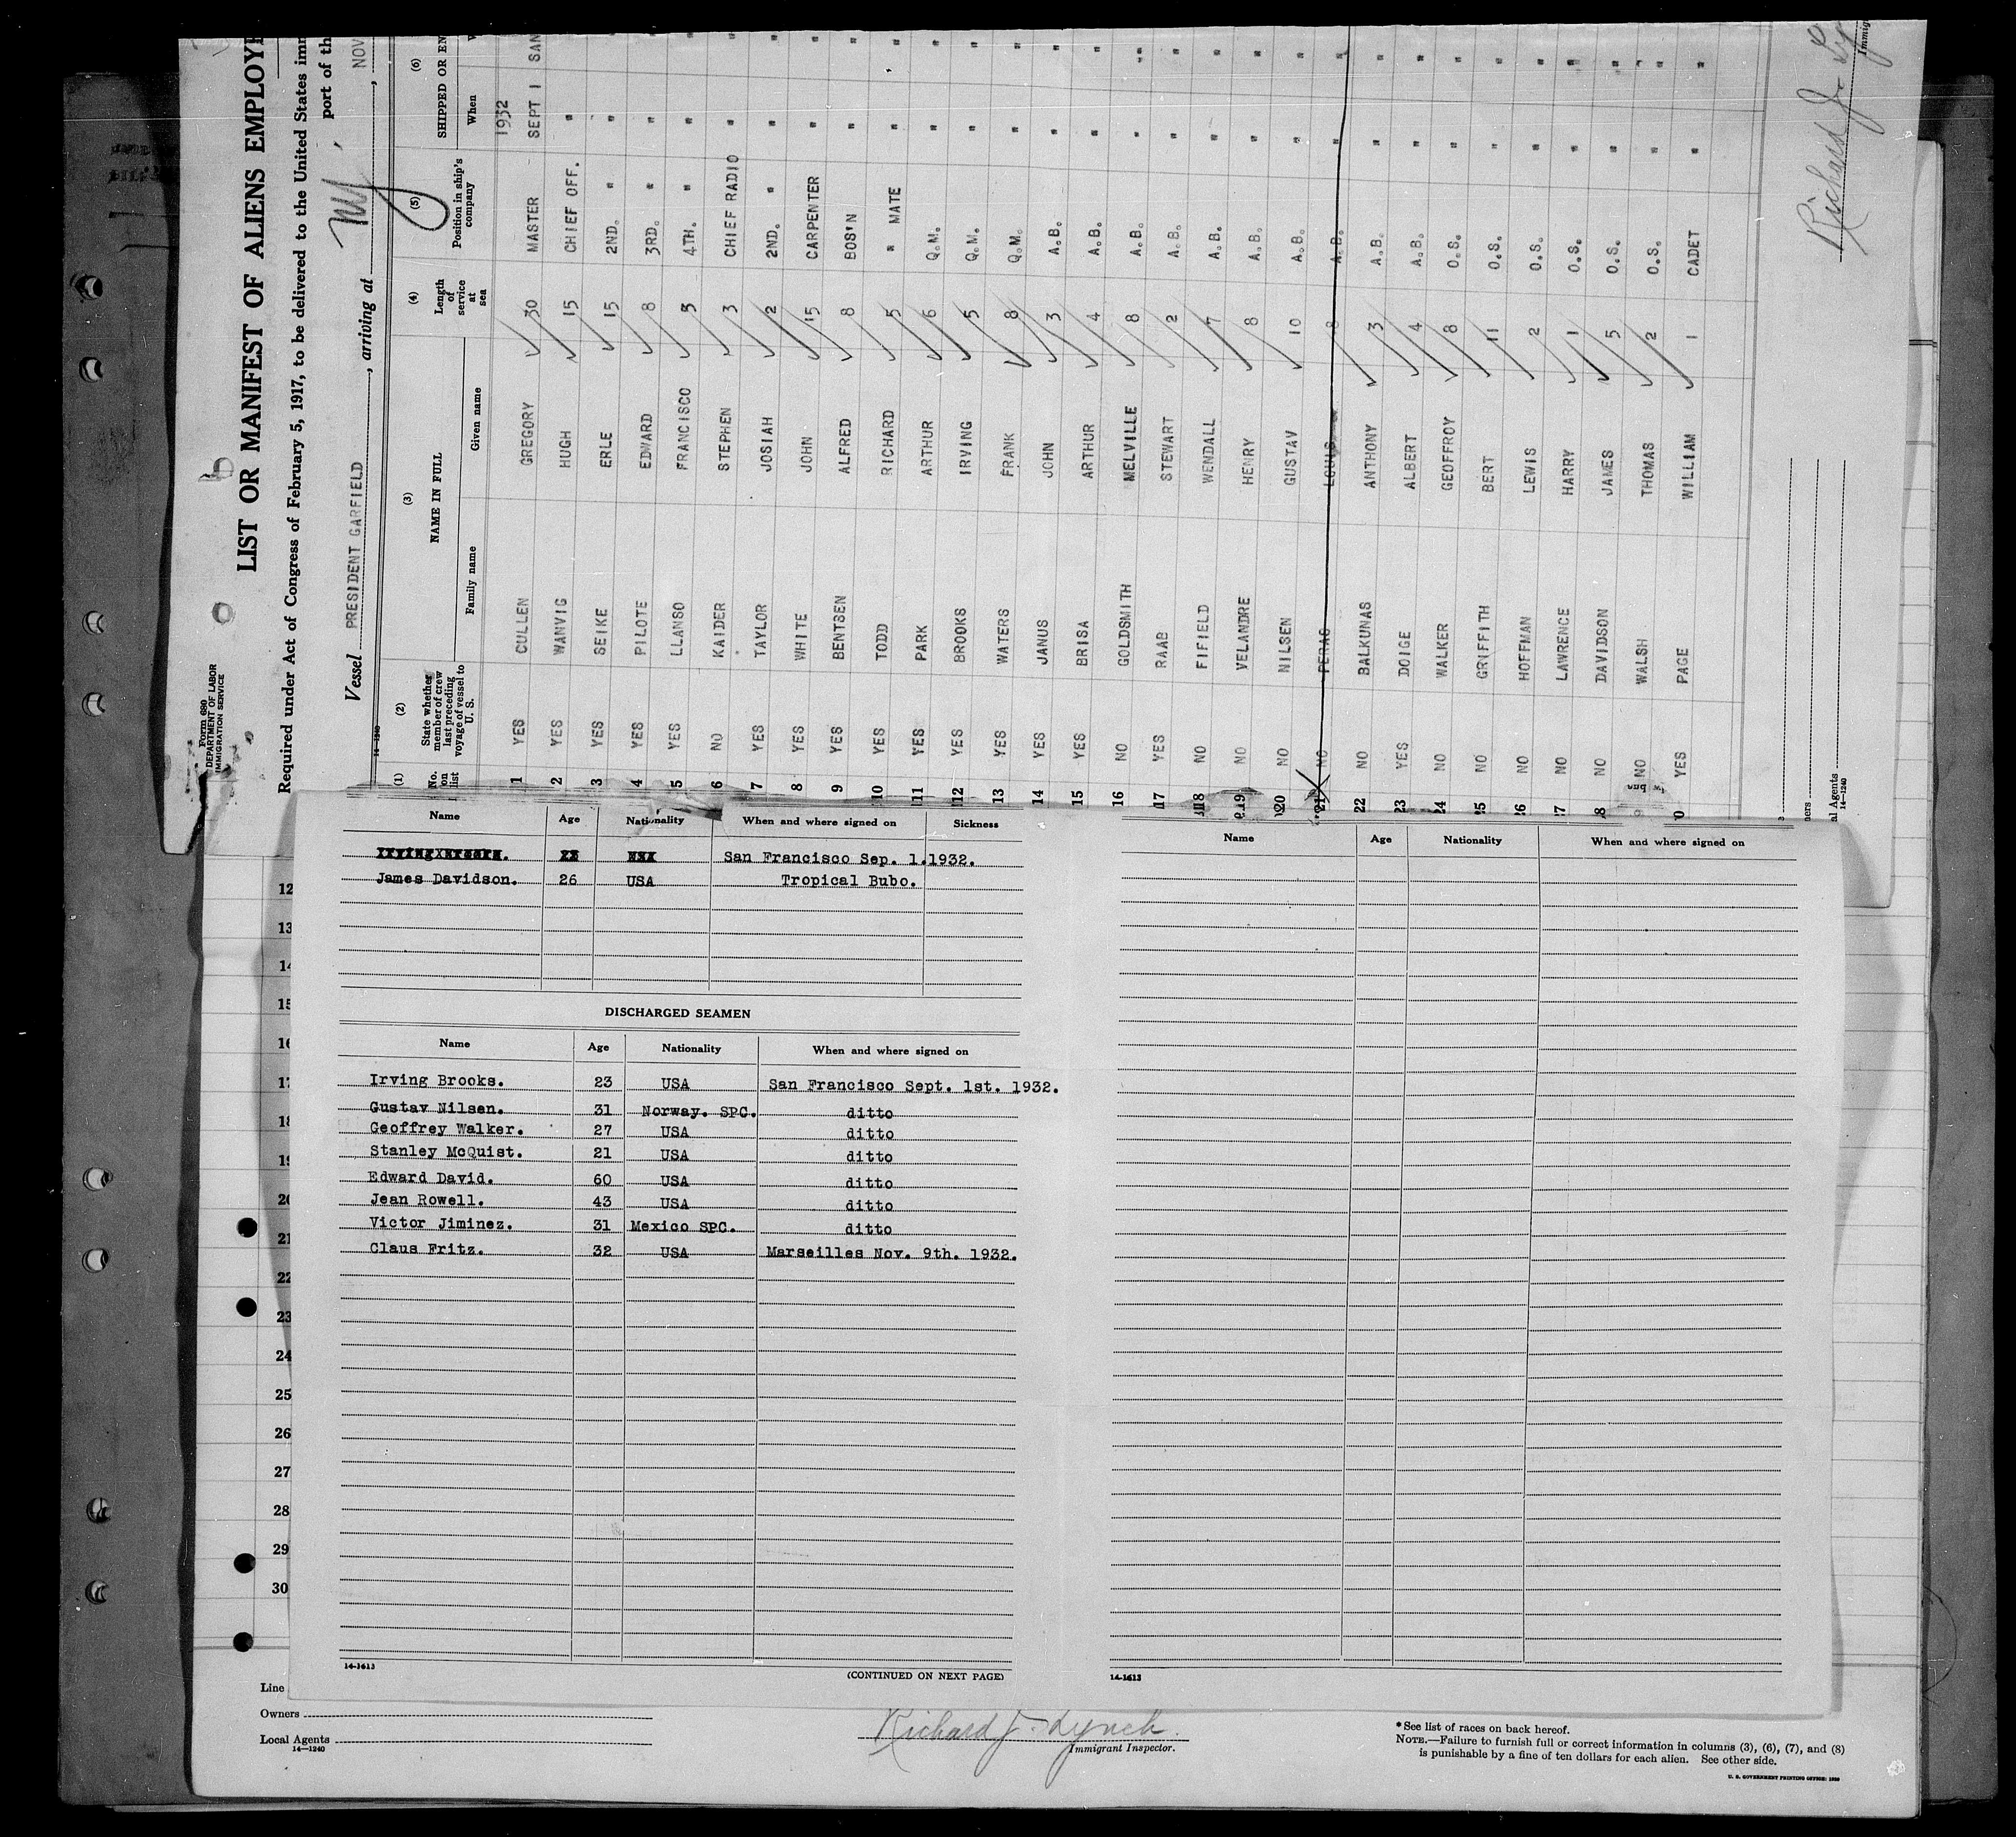 Form 680
DEPARTMENT OF LABOR
IMMIGRATION SERVICE
LIST OR MANIFEST OF ALIENS EMPLOYE
Required under Act of Congress of February 5, 1917, to be delivered to the United States imm
port of th
Vessel PRESIDENT GARFIELD, arriving at NY, NOV
14-1240
(1) (2) (3) (4) (5) (6)
No. on list State whether member of crew last preceding voyage of vessel to U. S. NAME IN FULL Length of service at sea Position in ship's company SHIPPED OR EN
Family name Given name When
1932
1 YES CULLEN GREGORY 30 MASTER SEPT 1 SAN
2 YES WANVIG HUGH 15 CHIEF OFF. " "
3 YES SEIKE ERLE 15 2ND. " " "
4 YES PILOTE EDWARD 8 3RD. " " "
5 YES LLANSO FRANCISCO 3 4TH. " " "
6 NO KAIDER STEPHEN 3 CHIEF RADIO " "
7 YES TAYLOR JOSIAH 2 2ND. " " "
8 YES WHITE JOHN 15 CARPENTER " "
9 YES BENTSEN ALFRED 8 BOS'N " "
10 YES TODD RICHARD 5 " MATE " "
11 YES PARK ARTHUR 6 Q.M. " "
12 YES BROOKS IRVING 5 Q.M. " "
13 YES WATERS FRANK 8 Q.M. " "
14 YES JANUS JOHN 3 A.B. " "
15 YES BRISA ARTHUR 4 A.B. " "
16 NO GOLDSMITH MELVILLE 8 A.B. " "
17 YES RAAB STEWART 2 A.B. " "
18 NO FIFIELD WENDALL 7 A.B. " "
19 NO VELANDRE HENRY 8 A.B. " "
20 NO NILSEN GUSTAV 10 A.B. " "
21 NO PERAS LOUIS 8 A.B. " "
22 NO BALKUNAS ANTHONY 3 A.B. " "
23 YES DOIGE ALBERT 4 A.B. " "
24 NO WALKER GEOFFROY 8 O.S. " "
25 NO GRIFFITH BERT 11 O.S. " "
26 NO HOFFMAN LEWIS 2 O.S. " "
7 NO LAWRENCE HARRY 1 O.S. " "
8 NO DAVIDSON JAMES 5 O.S. " "
9 NO WALSH THOMAS 2 O.S. " "
0 YES PAGE WILLIAM 1 CADET " "
Richard J. Ly
Immig
ners
al Agents
14-1240
Name Age Nationality When and where signed on Sickness
Irving Brooks. 23 San Francisco Sep. 1.1932.
James Davidson. 26 USA Tropical Bubo.
DISCHARGED SEAMEN
Name Age Nationality When and where signed on
Irving Brooks. 23 USA San Francisco Sept. 1st. 1932.
Gustav Nilsen. 31 Norway. SPC. ditto
Geoffrey Walker. 27 USA ditto
Stanley McQuist. 21 USA ditto
Edward David. 60 USA ditto
Jean Rowell. 43 USA ditto
Victor Jiminez. 31 Mexico SPC. ditto
Claus Fritz. 32 USA Marseilles Nov. 9th. 1932.
14-1613
(CONTINUED ON NEXT PAGE)
Name Age Nationality When and where signed on
14-1613
12
13
14
15
16
17
18
19
20
21
22
23
24
25
26
27
28
29
30
Line
Owners
Local Agents
14-1240
Richard J. Lynch.
Immigrant Inspector.
*See list of races on back hereof.
NOTE.—Failure to furnish full or correct information in columns (3), (6), (7), and (8)
is punishable by a fine of ten dollars for each alien. See other side.
U. S. GOVERNMENT PRINTING OFFICE: 1930